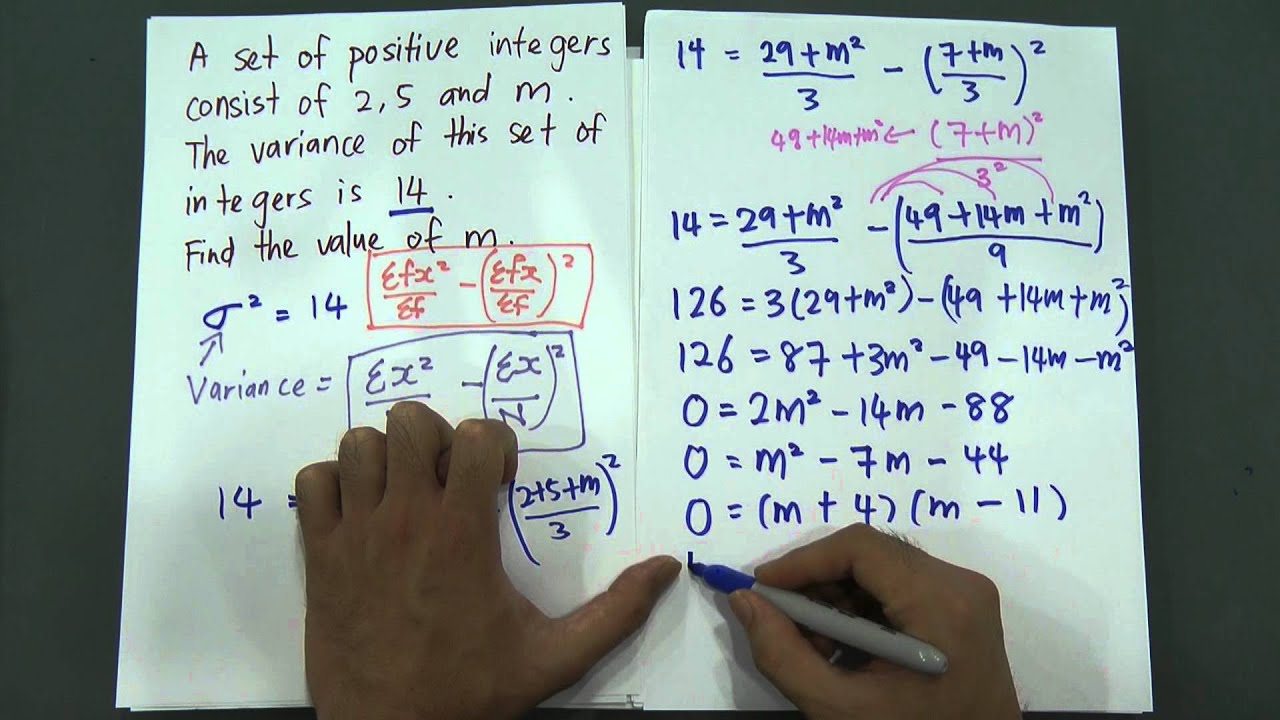 A set of positive integers
consist of 2, 5 and m.
The variance of this set of
integers is 14.
Find the value of m.
σ² = 14
Σfx²/Σf - (Σfx/Σf)²
Variance = Σx² - (Σx/N)²
14 = (2+5+m/3)²
14 = 29+m²/3 - (7+m/3)²
49+14m+m² ← (7+m)²
3²
14 = 29+m²/3 - (49+14m+m²/9)
126 = 3(29+m²) - (49+14m+m²)
126 = 87+3m²-49-14m-m²
0 = 2m²-14m-88
0 = m²-7m-44
0 = (m+4)(m-11)